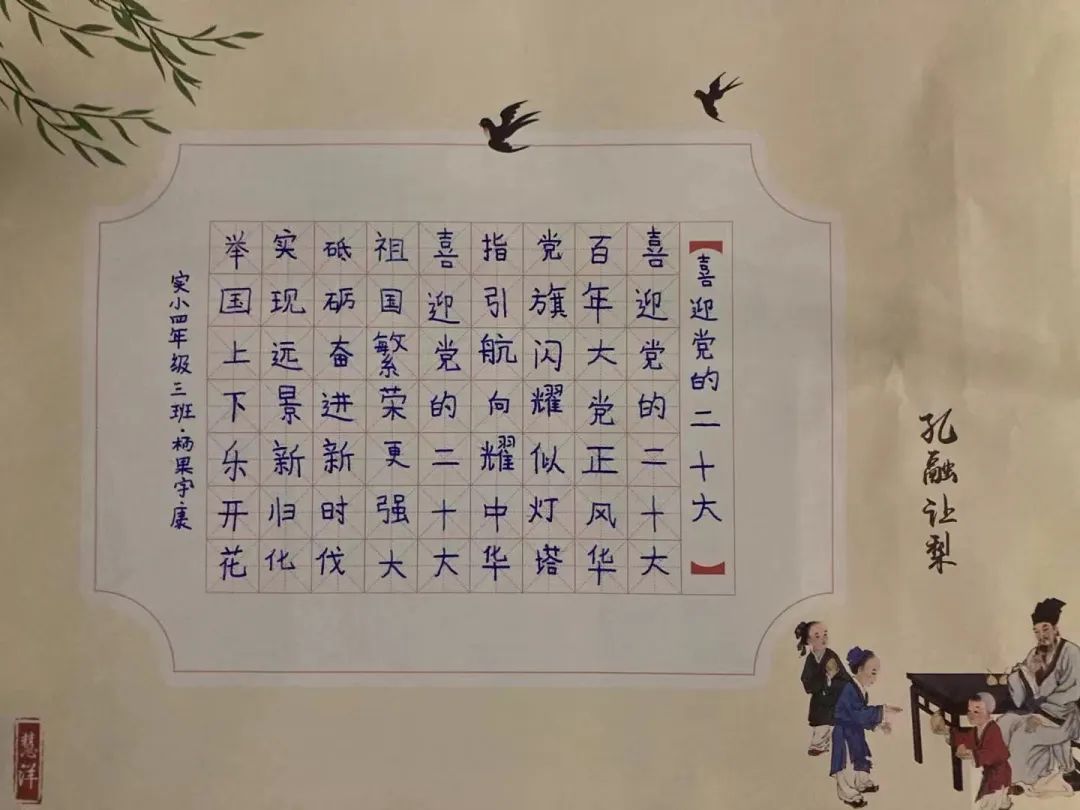 【喜迎党的二十大】
喜迎党的二十大
百年大党正风华
党旗闪耀似灯塔
指引航向耀中华
喜迎党的二十大
祖国繁荣更强大
砥砺奋进新时伐
实现远景新归化
举国上下乐开花
实小四年级三班·柄果宇康
孔融让梨
慧洋